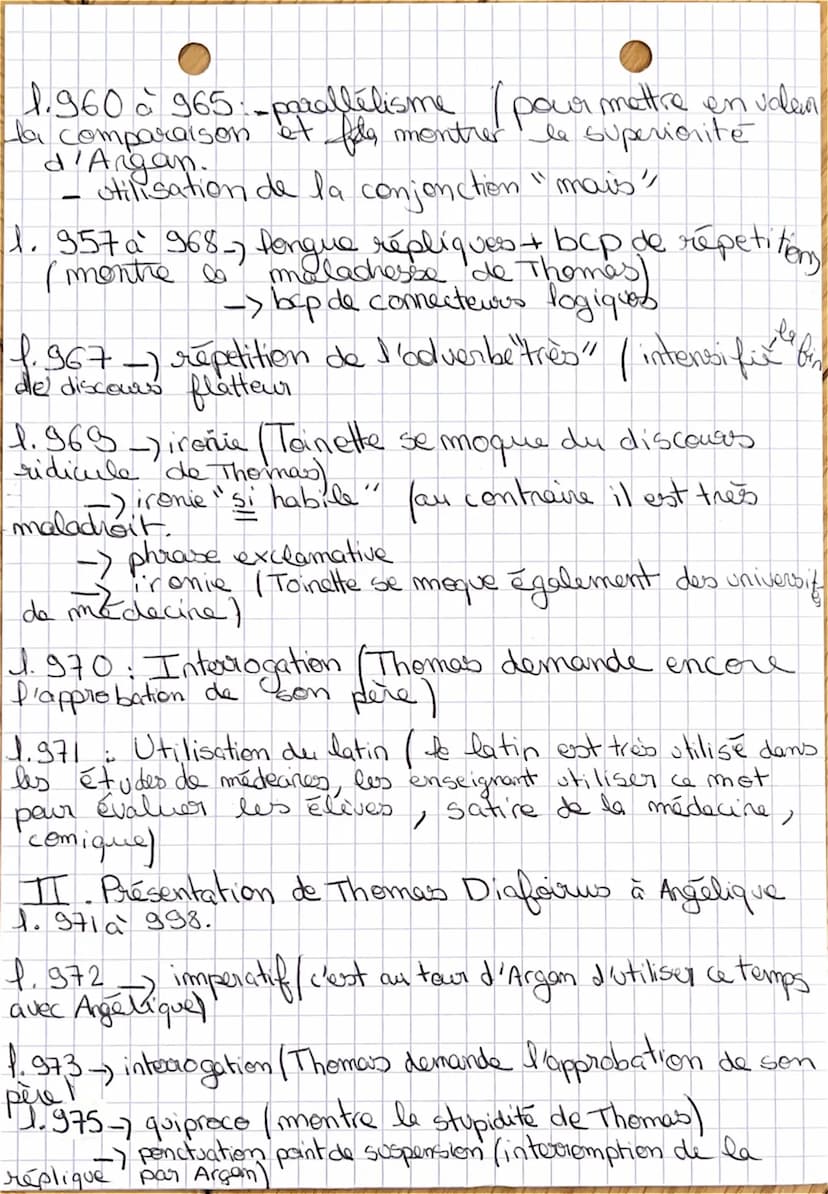 l.960 à 965: - parallélisme (pour mettre en valeur
la comparaison et montrer la superiorité
d'Argan.
- utilisation de la conjonction "mais"
l. 957 à 968 -> longue répliques + bcp de répetitions
(montre la maladresse de Thomas)
-> bcp de connecteurs logiques
l.967 -> répetition de l'adverbe "très" (intensifie la fin
de discours flatteur
l.969 -> ironie (Toinette se moque du discours
ridicule de Thomas)
-> ironie "si habile" (au contraire il est très
maladroit.
-> phrase exclamative
-> ironie (Toinette se moque également des universités
de médecine)
l.970 : Interrogation (Thomas demande encore
l'approbation de son père)
l.971 : Utilisation du latin (le latin est très utilisé dans
les études de médecines, les enseignant utiliser ce mot
pour évaluer les élèves, satire de la médecine,
comique)
II. Présentation de Thomas Diafoirus à Angélique
l. 971 à 998.
l.972 -> imperatif (c'est au tour d'Argan d'utiliser ce temps
avec Angélique)
l.973 -> interrogation (Thomas demande l'approbation de son
père)
l.975 -> quiproco (montre la stupidité de Thomas)
-> ponctuation point de suspension (interromption de la
réplique par Argan)